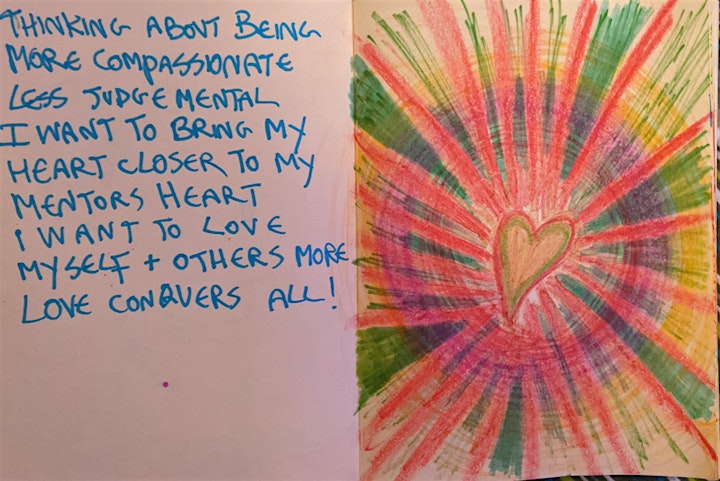 THINKING ABOUT BEING
MORE COMPASSIONATE
LESS JUDGEMENTAL
I WANT TO BRING MY
HEART CLOSER TO MY
MENTORS HEART
I WANT TO LOVE
MYSELF + OTHERS MORE
LOVE CONQUERS ALL!